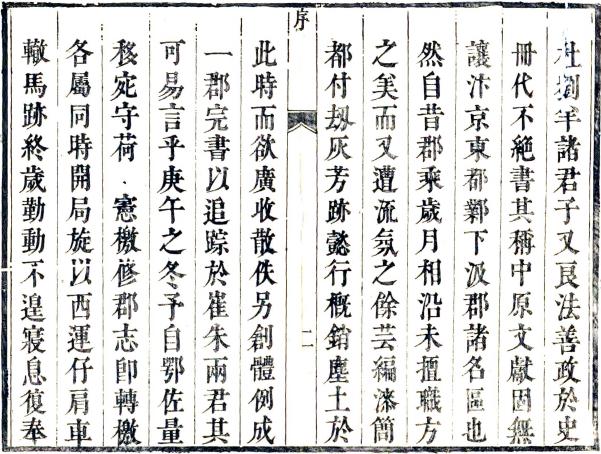 杜劉羊諸君子又良法善政於史
冊代不絕書其稱中原文獻固無
讓汴京東都鄴下汲郡諸名區也
然自昔郡乘歲月相沿未擅職方
之美而又遭流氛之餘芸編漆簡
都付刼灰芳跡懿行概銷塵土於
序 二
此時而欲廣收散佚另創體例成
一郡完書以追踪於崔朱兩君其
可易言乎庚午之冬予自鄂佐量
移宛守荷 憲檄修郡志卽轉檄
各屬同時開局旋以西運仔肩車
轍馬跡終歲勤動不遑寢息復奉